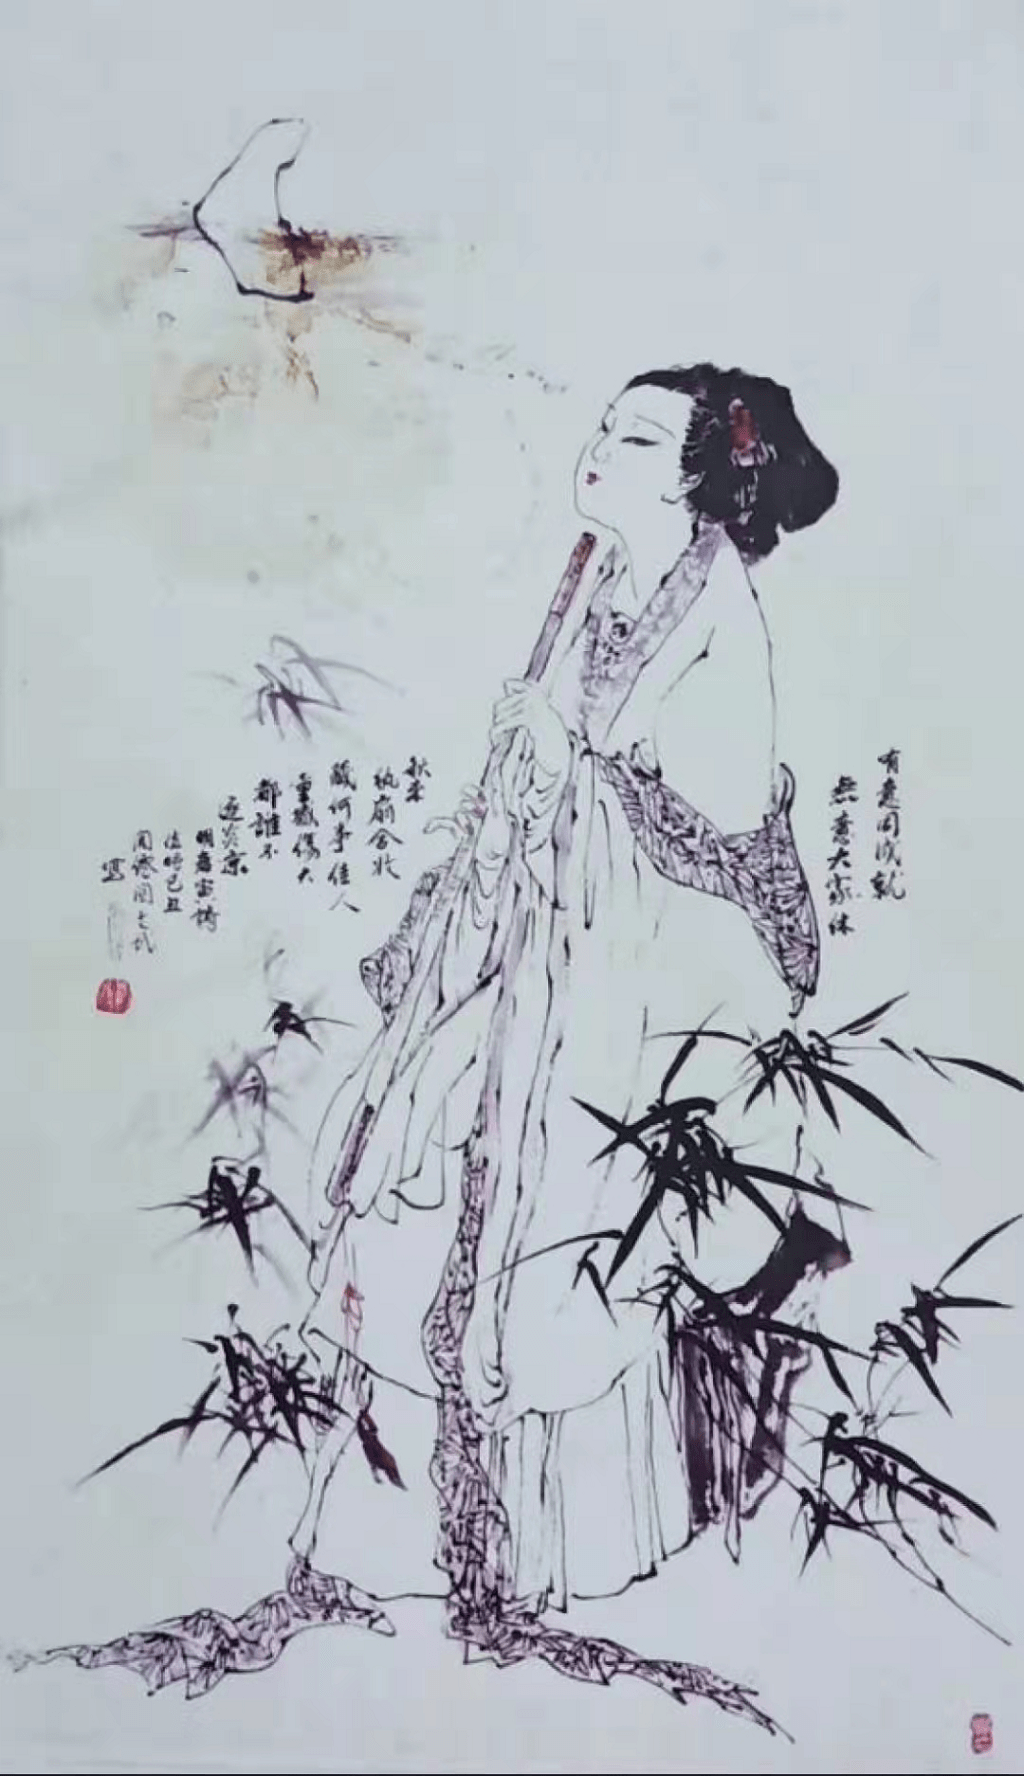 有意同成就
無意大家休
秋來
紈扇合收
藏何事佳人
重感傷大
都誰不
逐炎凉
明唐寅詩
時己丑
寫